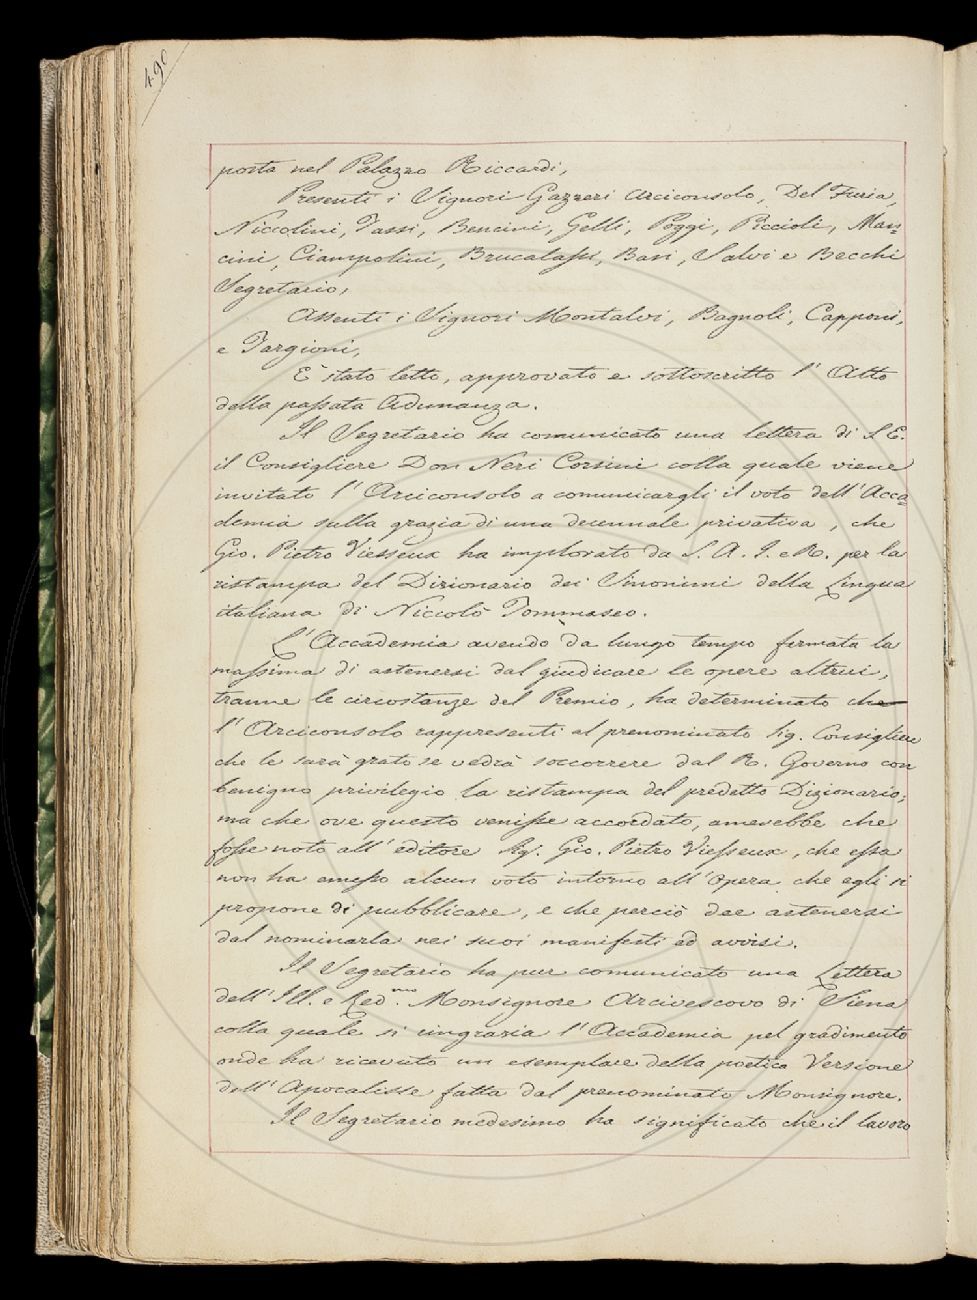 490
posta nel Palazzo Riccardi,
Presenti i Signori Gazzeri Arciconsolo, Del Furia,
Niccolini, Tassi, Bencini, Gelli, Poggi, Piccioli, Man=
cini, Ciampolini, Brucalassi, Bani, Salvi e Becchi
Segretario,
Assenti i Signori Montalvi, Bagnoli, Capponi,
e Targioni,
È stato letto, approvato e sottoscritto l' Atto
della passata Adunanza.
Il Segretario ha comunicato una lettera di S. E.
il Consigliere Don Neri Corsini colla quale viene
invitato l' Arciconsolo a comunicargli il voto dell' Acca=
demia sulla grazia di una decennale privativa, che
Gio. Pietro Viesseux ha implorato da S. A. I. e R. per la
ristampa del Dizionario dei Sinonimi della Lingua
italiana di Niccolò Tommaseo.
L' Accademia avendo da lungo tempo fermata la
massima di astenersi dal giudicare le opere altrui,
tranne le circostanze del Premio, ha determinato che
l' Arciconsolo rappresenti al prenominato Sig. Consigliere
che le sarà grato se vedrà soccorrere dal R. Governo con
benigno privilegio la ristampa del predetto Dizionario;
ma che ove questo venisse accordato, amerebbe che
fosse noto all' editore Sig. Gio. Pietro Viesseux, che essa
non ha emesso alcun voto intorno all' opera che egli si
propone di pubblicare, e che perciò dee astenersi
dal nominarla nei suoi manifesti ed avvisi.
Il Segretario ha pur comunicato una Lettera
dell' Ill. e Red.mo Monsignore Arcivescovo di Siena
colla quale si ringrazia l' Accademia pel gradimento
onde ha ricevuto un esemplare della poetica Versione
dell' Apocalisse fatta dal prenominato Monsignore.
Il Segretario medesimo ha significato che il lavoro